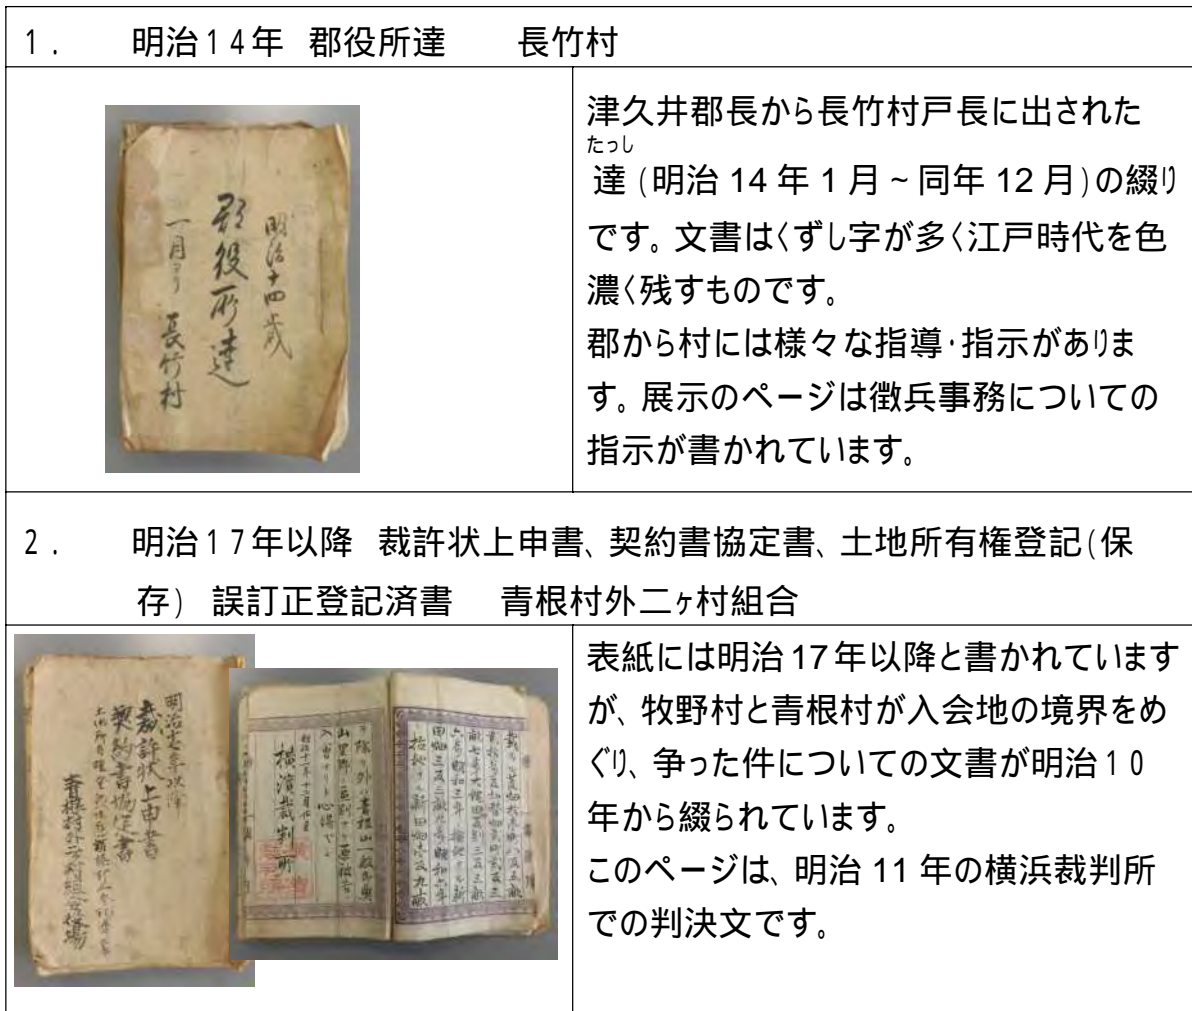 1. 明治14年 郡役所達 長竹村
明治十四歳
郡役所達
一月ヨリ 長竹村
津久井郡長から長竹村戸長に出された
たっし
達(明治14年1月~同年12月)の綴り
です。文書はくずし字が多く江戸時代を色
濃く残すものです。
郡から村には様々な指導・指示がありま
す。展示のページは徴兵事務についての
指示が書かれています。
2. 明治17年以降 裁許状上申書、契約書協定書、土地所有権登記(保
存) 誤訂正登記済書 青根村外二ヶ村組合
裁許状上申書
契約書協定書
横濱裁判所
表紙には明治17年以降と書かれています
が、牧野村と青根村が入会地の境界をめ
ぐり、争った件についての文書が明治10
年から綴られています。
このページは、明治11年の横浜裁判所
での判決文です。